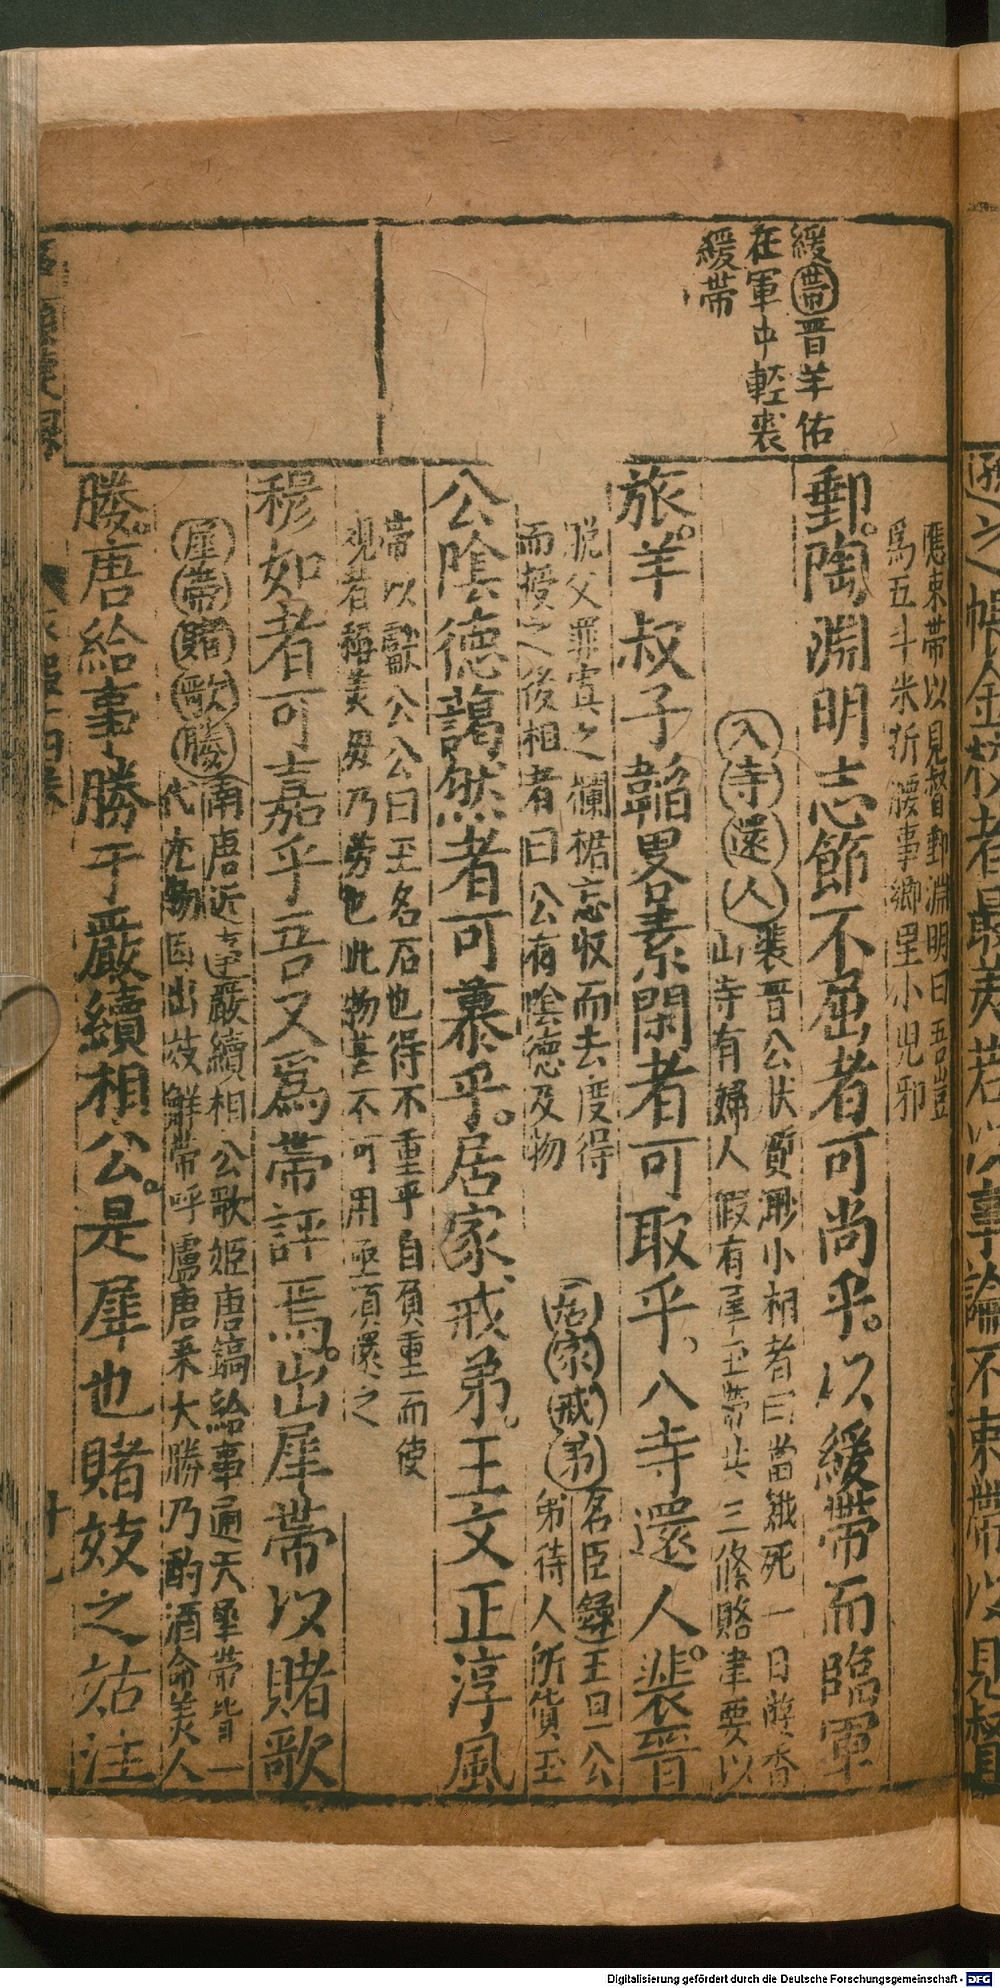 緩帶晋羊佑
在軍中輕裘
緩帶
應束帶以見督郵淵明曰吾豈
爲五斗米折腰事鄉里小兒邪
郵。陶淵明志節不屈者可尚乎。以緩帶而臨軍
入寺還人
裴晋公状質渺小相者曰當餓死一日遊香
山寺有婦人假有犀玉帶共三條賂津要以
旅。羊叔子韜畧素閑者可取乎、入寺還人。裴晋
脱父罪寘之欄楯忘收而去度得
而授之後相者曰公有陰德及物
居家戒弟
名臣錄王旦一公
弟待人所貨玉
公陰德藹然者可慕乎。居家戒弟。王文正淳風
帶以獻公公曰玉名石也得不重乎自負重而使
观者稱美毋乃劳也此物甚不可用亟須還之
穆如者可嘉乎吾又爲帶評焉。出犀帶以賭歌
犀帶賭歌勝
南唐近
嚴續相公歌姬唐鎬給事通天犀帶皆一
代尤物因出妓解帶呼盧唐釆大勝乃酌酒命美人
勝。唐給事勝于嚴續相公。是犀也賭妓之
注
遜之帳金
者最美若以事論不束帶以見督
Digitalisierung gefördert durch die Deutsche Forschungsgemeinschaft - DFG